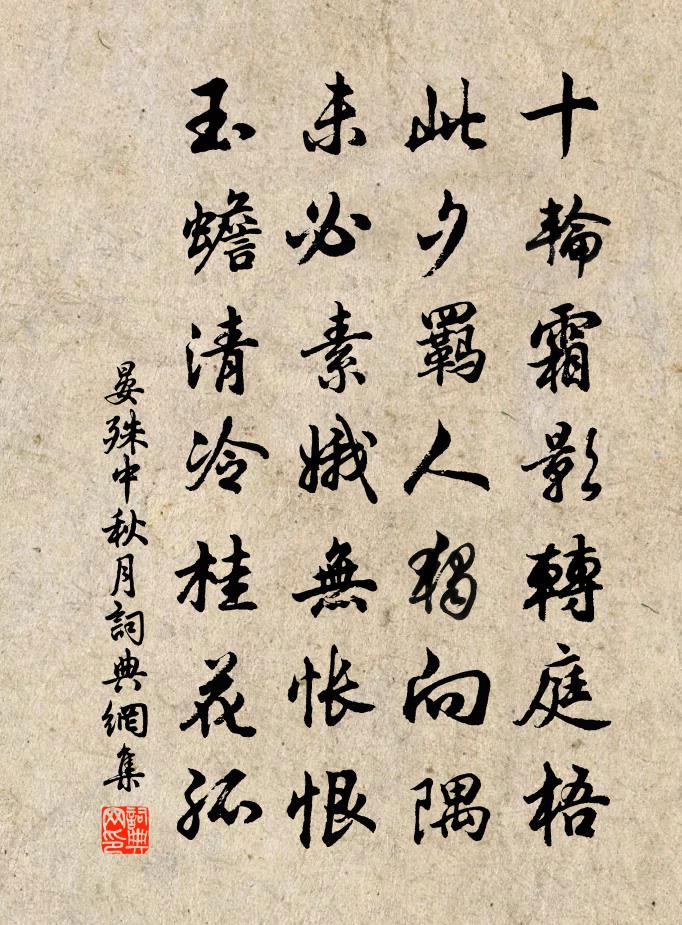 十輪霜影轉庭梧
此夕羈人獨向隅
未必素娥無悵恨
玉蟾清冷桂花孤
晏殊中秋月詞典網集
詞典网印